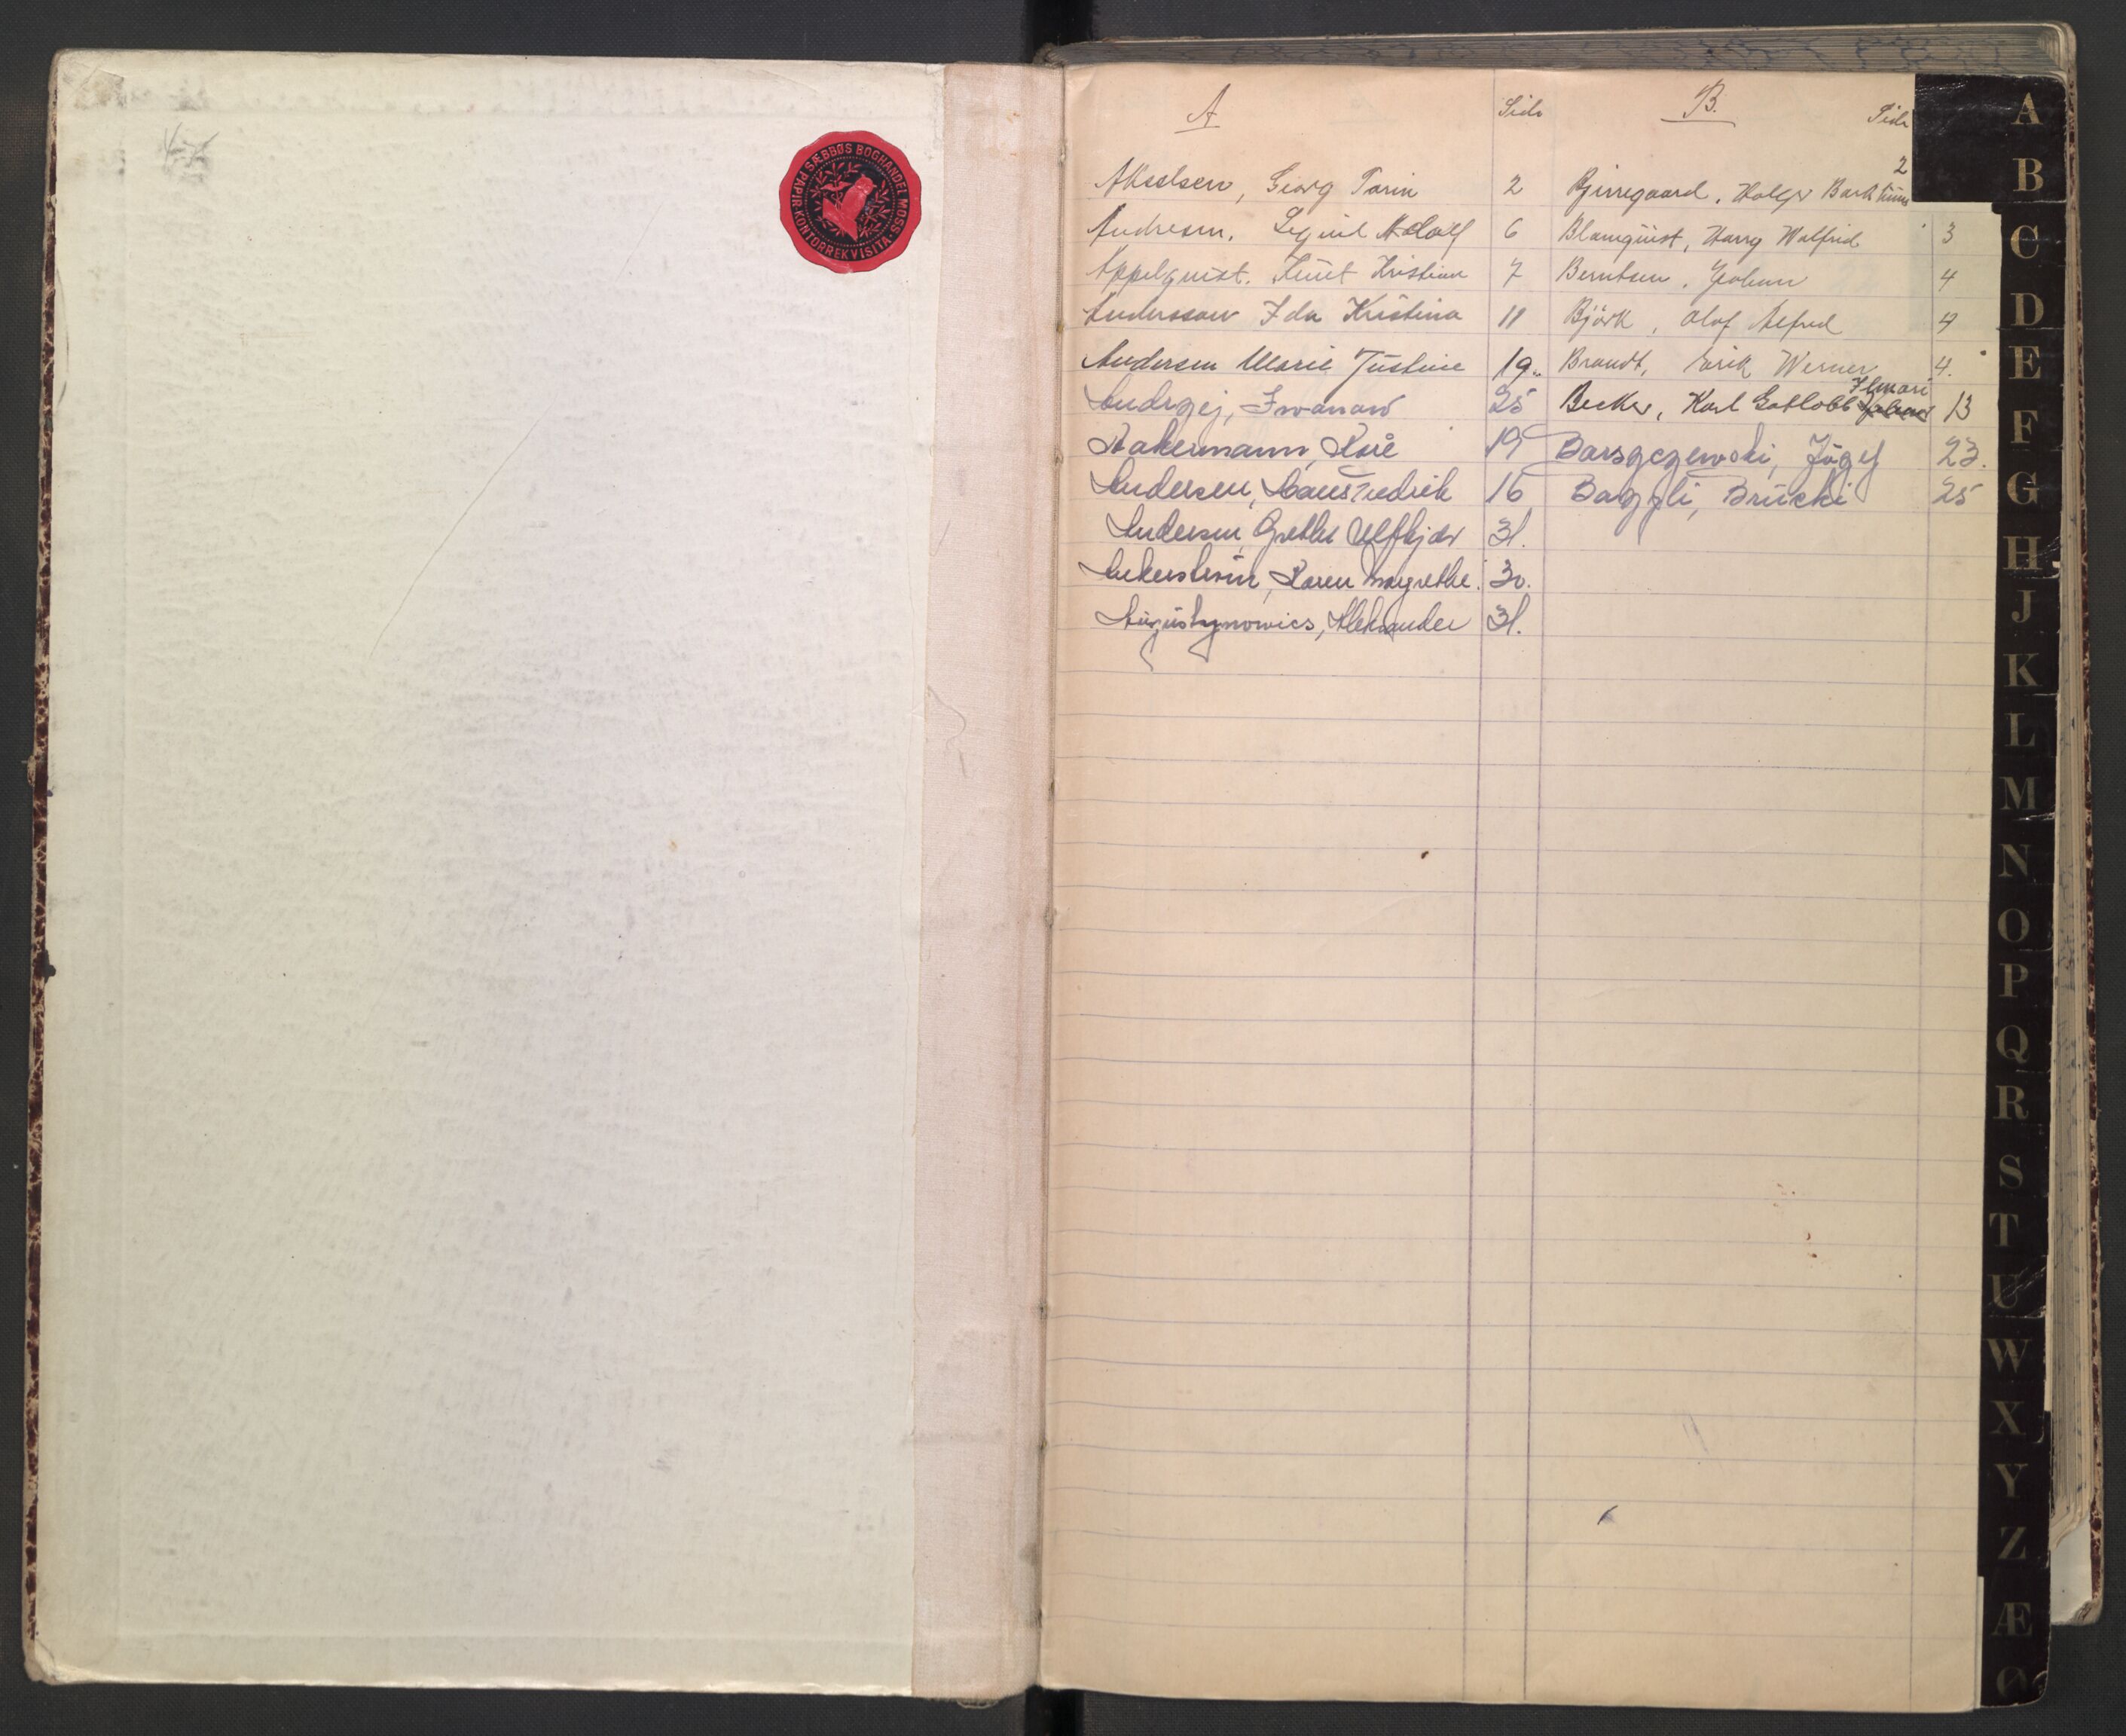 SÆBBØS BOGHANDEL MOSS · PAPIR · KONTORREKVISITA ·
A Side
Akselsen, Georg Tarin 2
Andresen, Adolf 6
Appelquist, Knut Kristian 7
Andersson Ida Kristina 11
Andersen Marie Justine 19.
Andrzej, Iwanow 25
Aakermann, Kåre 19
Andersen, Hans Fredrik 16
Andersen, Grethe Ulfkjær 31.
Ankerstein, Karen Margrethe. 30.
Augustynowics, Aleksander 31.
B. Side
Bjerregaard, Holger 2
Blomquist, Harry Walfrid 3
Berntsen, Johan 4
Björk, Olof Alfred 4
Brandt, Erik Werner 4.
Becker, Karl Gotlobb Ilmari 13
Barszczewski, Józef 23.
Bagzli, Brucki 25
A
B
C
D
E
F
G
H
J
K
L
M
N
O
P
Q
R
S
T
U
W
X
Y
Z
Æ
Ø